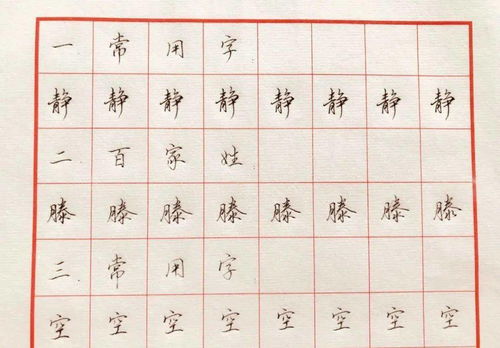 一常用字
静静静静静静静静
二百家姓
滕滕滕滕滕滕滕滕
三常用字
空空空空空空空空